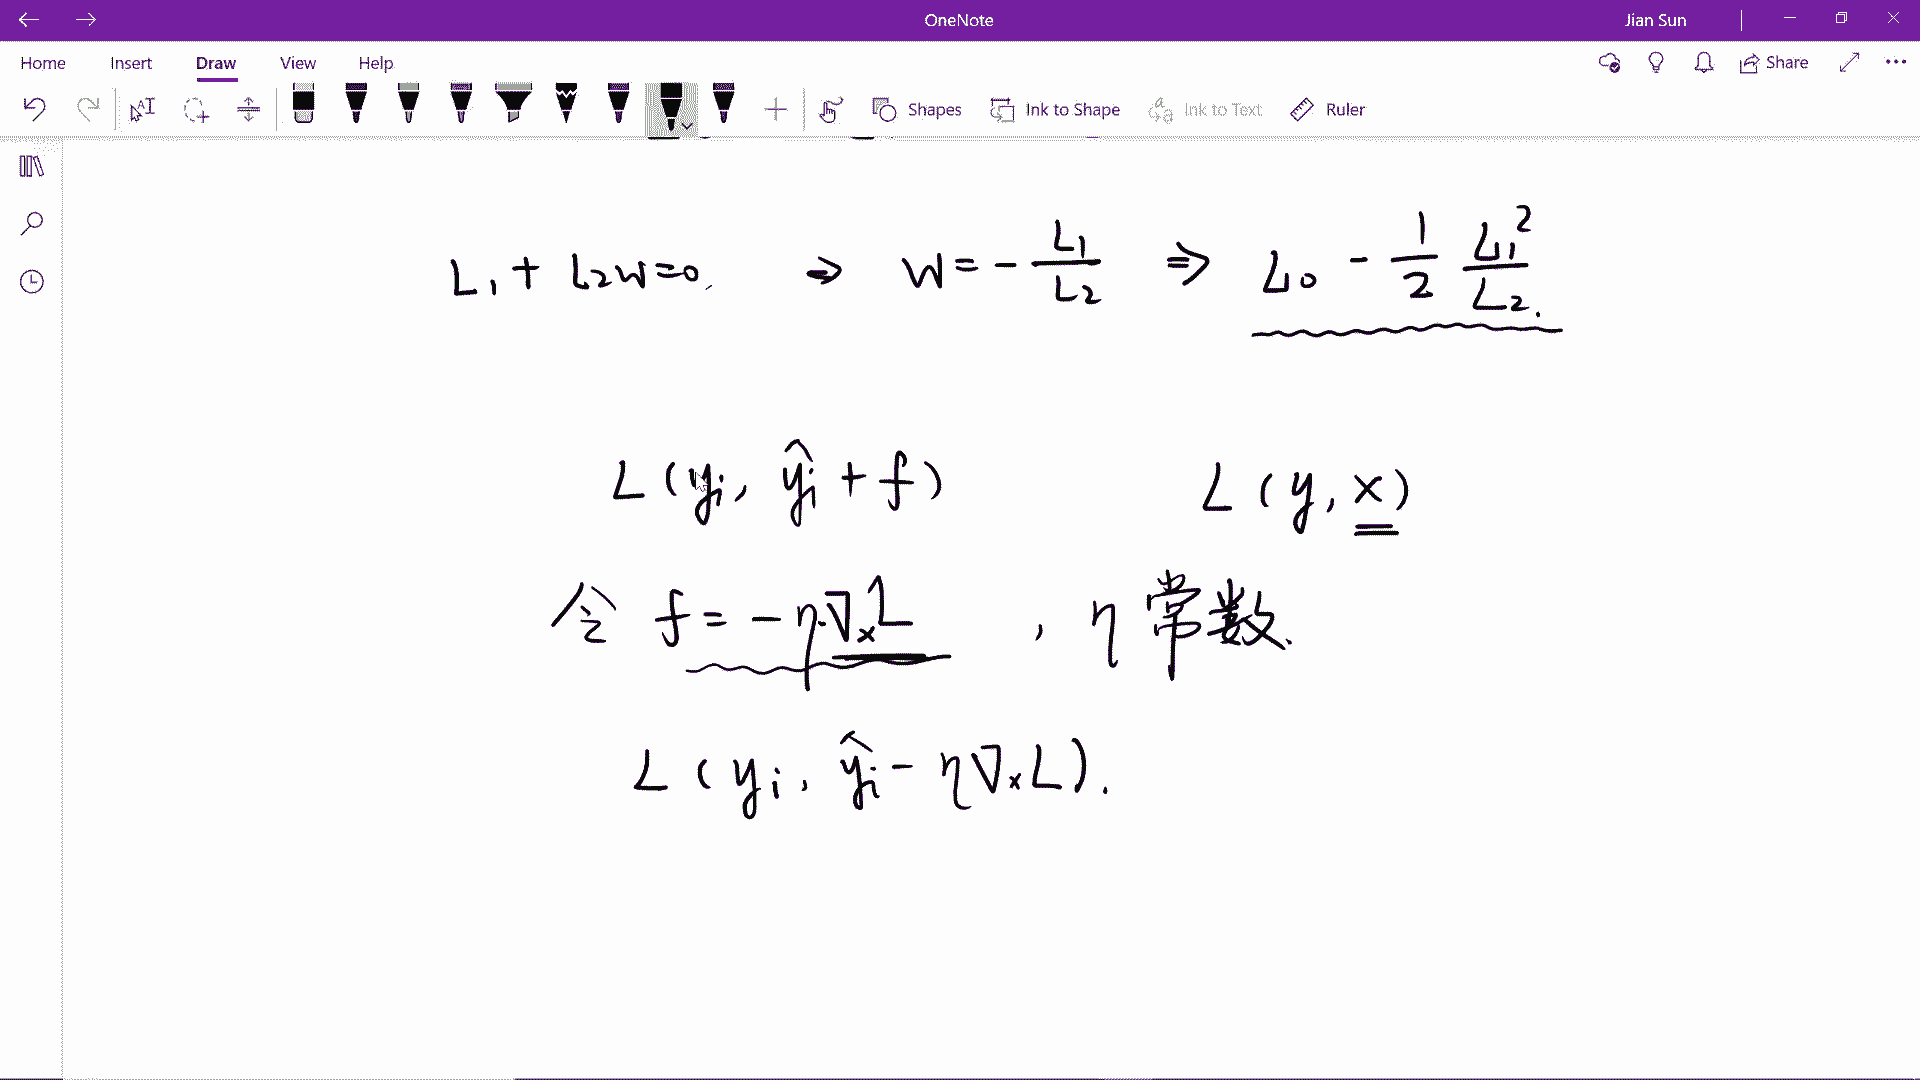 OneNote
Jian Sun
Home Insert Draw View Help
Share
Shapes Ink to Shape Ink to Text Ruler
L₁ + L₂w=0. ⇒ w = - L₁/L₂ ⇒ L₀ - 1/2 L₁²/L₂.
L (yᵢ, ŷᵢ + f) L (y, x)
令 f = - η·∇ₓL , η 常数.
L (yᵢ, ŷᵢ - η∇ₓL).